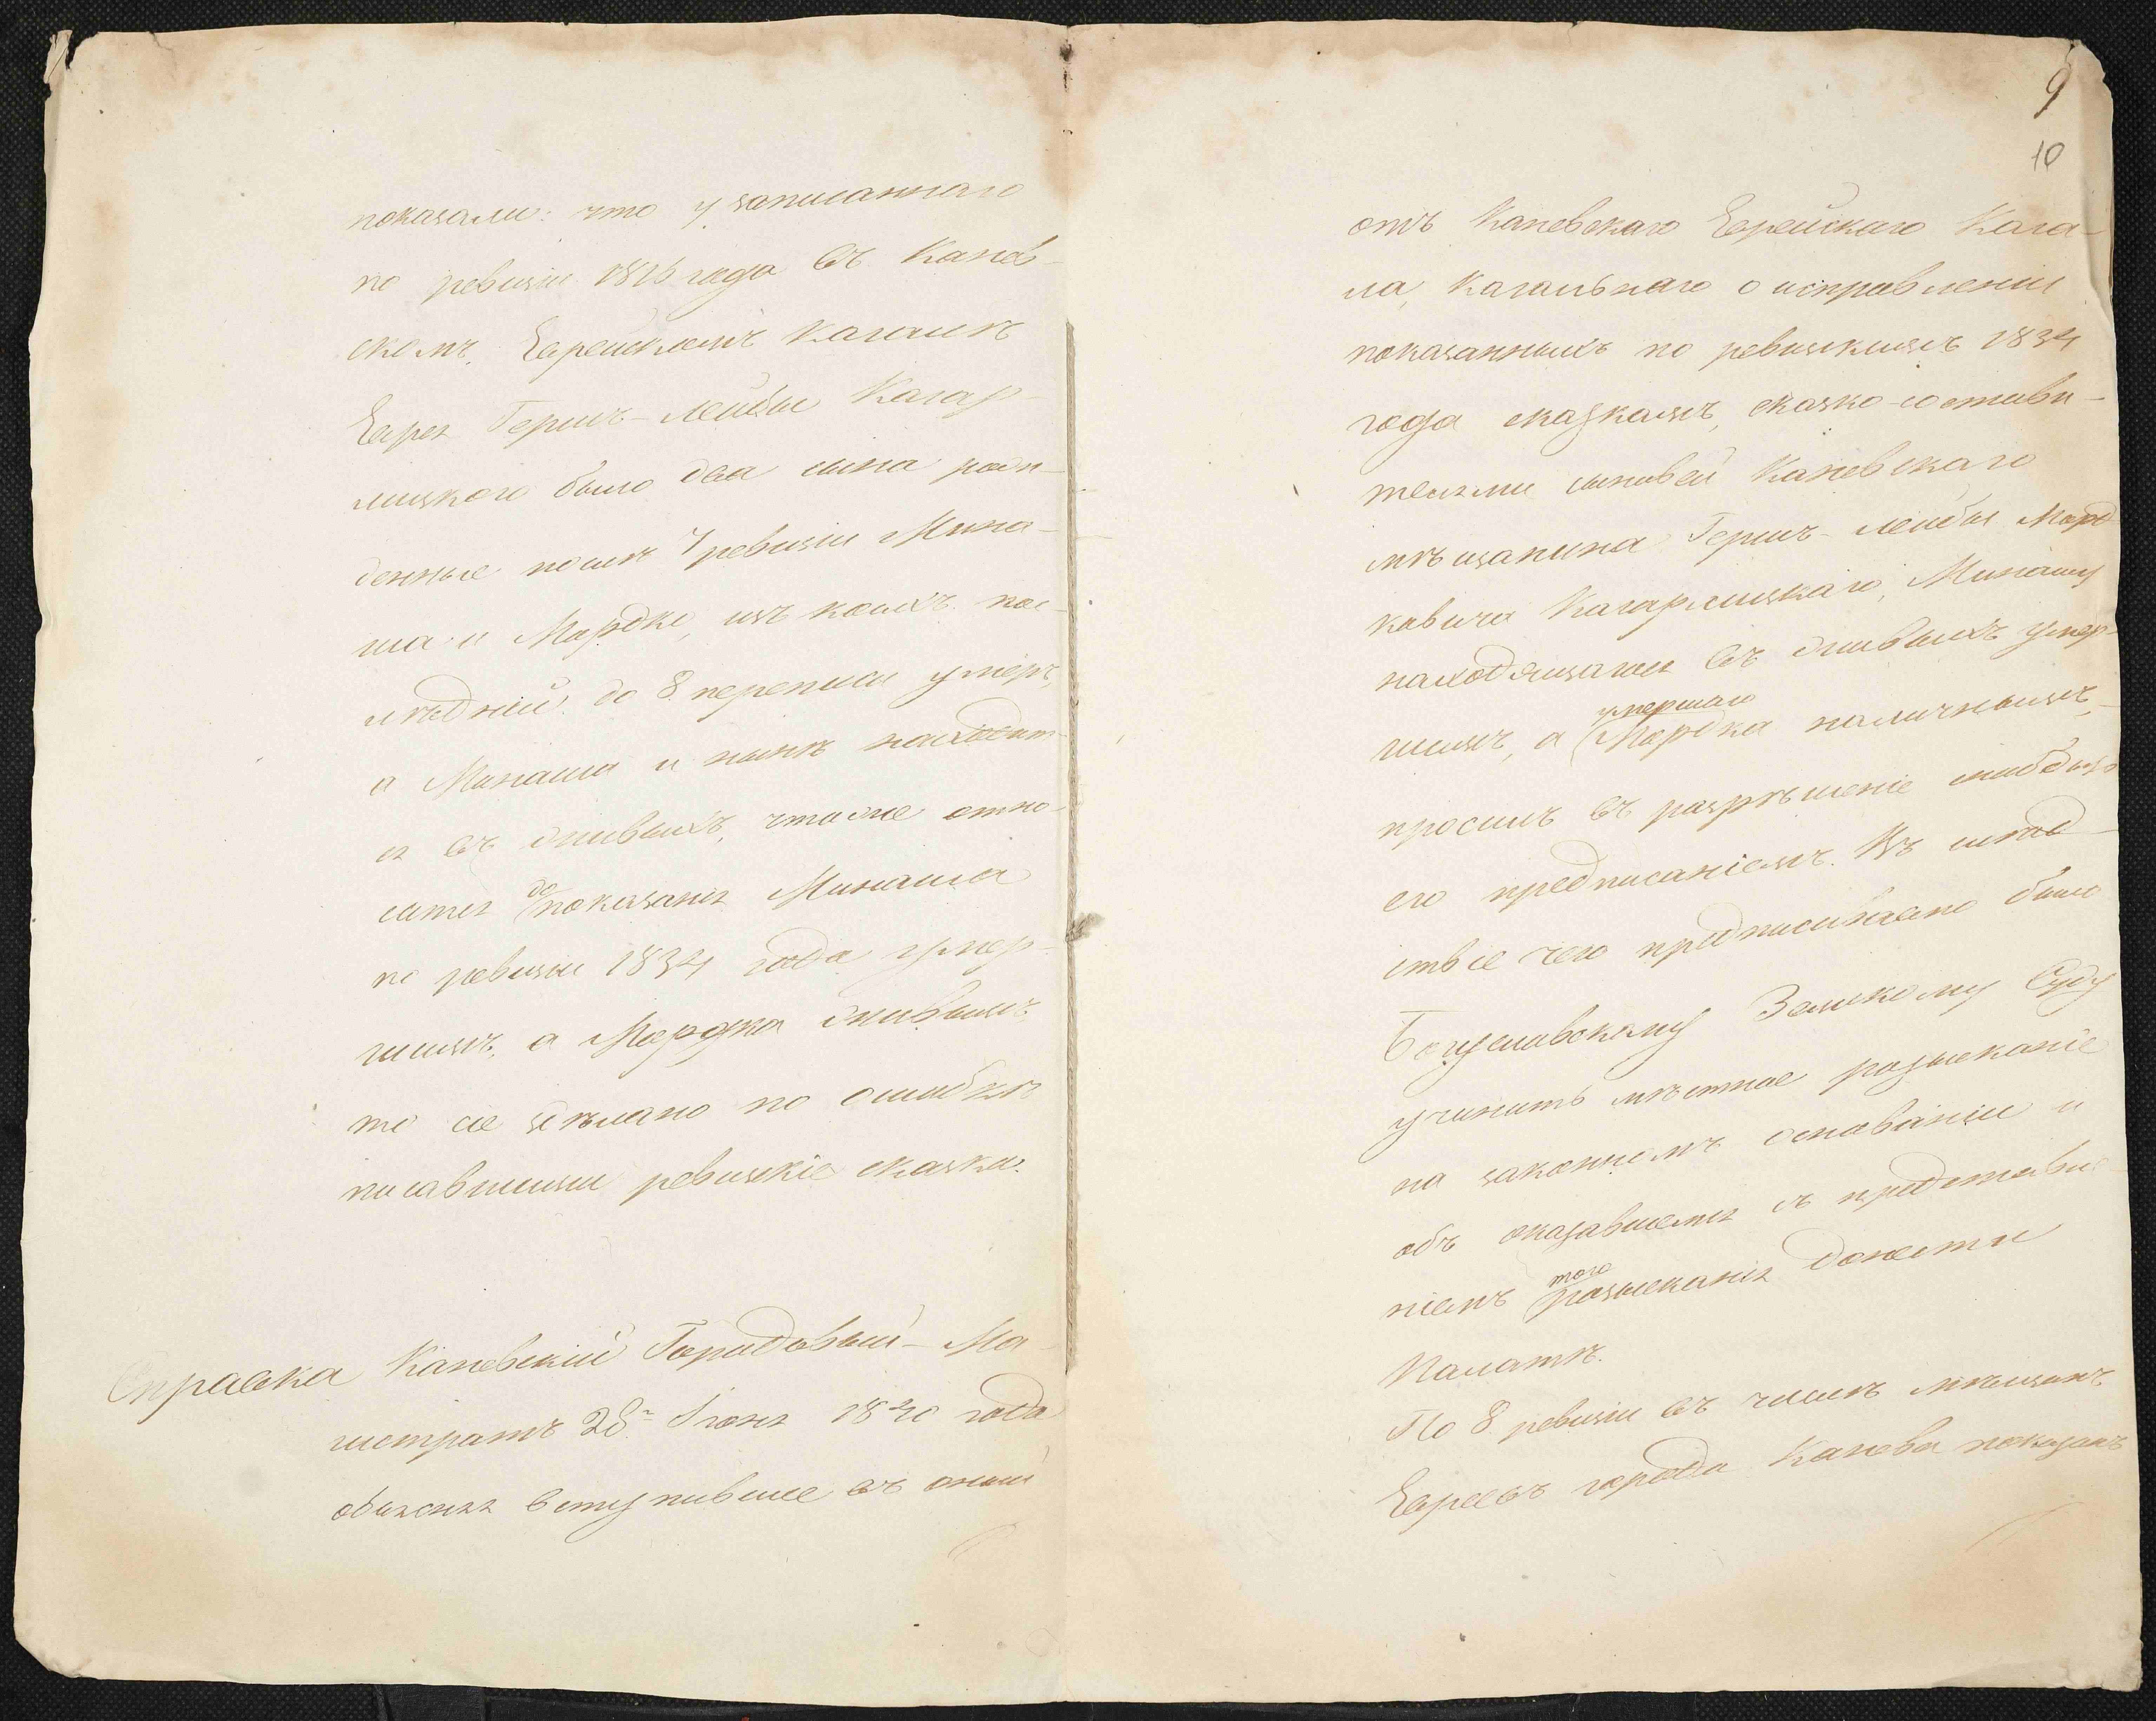 показали: что у записаннаго
по ревизіи 1816 года въ Канев-
скомъ Еврейскомъ Кагалѣ
Еврея Гершъ-Лейбы Кагар-
лицкого было два сына рож-
денные послѣ 7 ревизіи Мина-
ша и Мордко, изъ коихъ пос-
лѣдній до 8 переписи умеръ,
а Минаша и нынѣ находит-
ся въ живыхъ, чтоже отно-
сится до показанія Минаша
по ревизіи 1834 года умер-
шимъ, а Мордка живымъ
то сіе здѣлано по ошибкѣ
писавшими ревизкіе сказки.
Справка Каневскій Городовый-Ма-
гистратъ 28го Іюня 1840 года
объясняя вступившее въ оный
9
10
отъ Каневскаго Еврейскаго Кага-
ла, Кагальнаго о исправленіи
показанныхъ по ревизскимъ 1834
года сказкамъ, сказко-состави-
телями сыновей Каневскаго
мѣщанина Гершъ-Лейбы Морд-
ковича Кагарлицкаго, Минашу
находящагося въ живыхъ умер-
шимъ, а умершаго Мордка наличнымъ,
просилъ въ разрѣшеніе снабдить
его предписаніемъ. Въ слѣд-
ствіе чего предписывано было
Богуславскому Земскому Суду
учинить мѣстное розысканіе
на законномъ основаніи и
объ оказавшемся съ представле-
ніемъ того розысканія донести
Палатѣ.
По 8 ревизіи въ числѣ мѣщанъ
Евреевъ города Канева показанъ